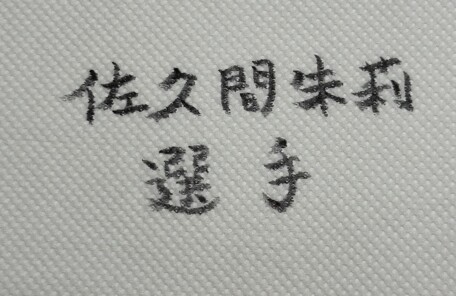 佐久間朱莉
選手